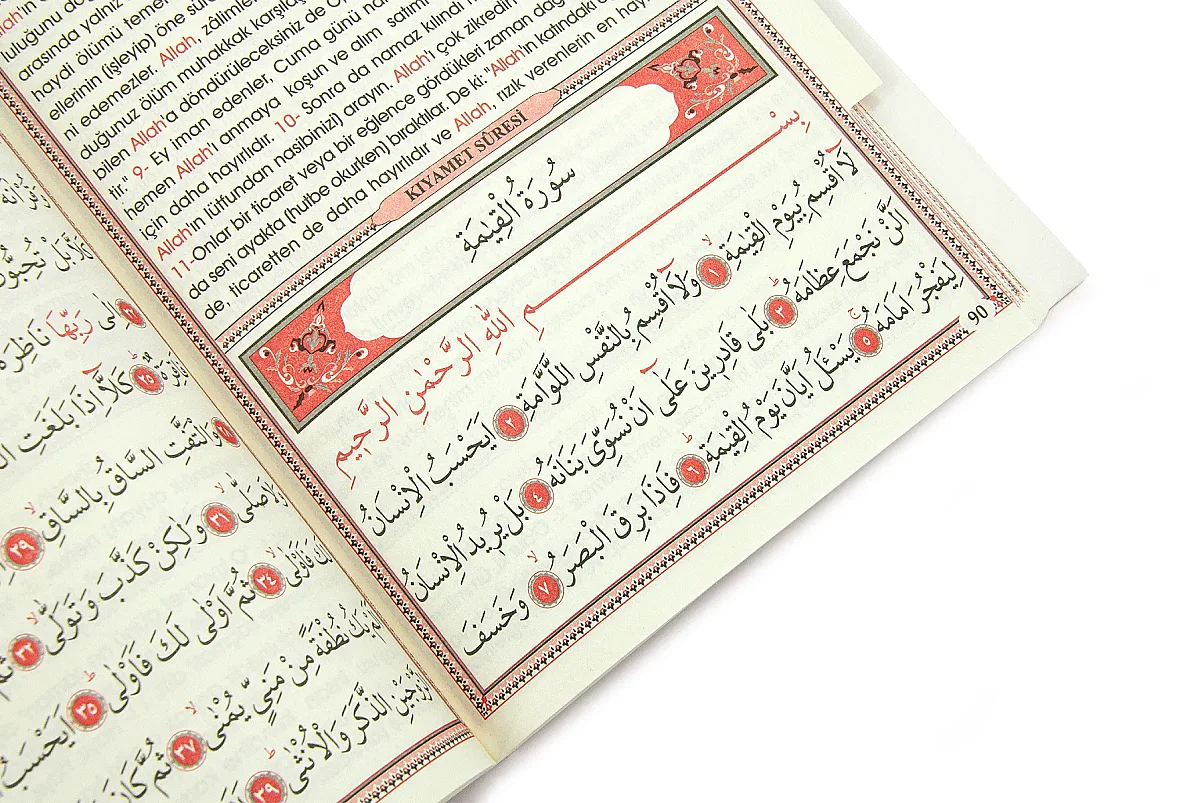 lah'ın
uluğunu
arasında yalnız
haydi ölümü teme
ellerinin (işleyip) öne sür
ni edemezler. Allah, zâlimle
duğunuz ölüm muhakkak karşılaş
bilen Allah'a döndürüleceksiniz de O
tir." 9- Ey iman edenler, Cuma günü na
hemen Allah'ı anmaya koşun ve alım satımı
için daha hayırlıdır. 10- Sonra da namaz kılındı m
Allah'ın lütfundan nasibinizi) arayın. Allah'ı çok zikredin
11-Onlar bir ticaret veya bir eğlence gördükleri zaman dağ
da seni ayakta (hutbe okurken) bıraktılar. De ki: "Allah'ın kalındaki
de, ticaretten de daha hayırlıdır ve Allah, rızik verenlerin en hay
KIYAMET SÛRESİ
سُورَةُ الْقِيٰمَةِ
بِسْــــــمِ اللّٰهِ الرَّحْمٰنِ الرَّحِيمِ
لَٓا اُقْسِمُ بِيَوْمِ الْقِيٰمَةِۙ ﴿١﴾ وَلَٓا اُقْسِمُ بِالنَّفْسِ اللَّوَّامَةِ ﴿٢﴾ اَيَحْسَبُ الْاِنْسَانُ
اَلَّنْ نَجْمَعَ عِظَامَهُۜ ﴿٣﴾ بَلٰى قَادِرِينَ عَلٰٓى اَنْ نُسَوِّيَ بَنَانَهُ ﴿٤﴾ بَلْ يُرِيدُ الْاِنْسَانُ
لِيَفْجُرَ اَمَامَهُۚ ﴿٥﴾ يَسْـَٔلُ اَيَّانَ يَوْمُ الْقِيٰمَةِۜ ﴿٦﴾ فَاِذَا بَرِقَ الْبَصَرُۙ ﴿٧﴾ وَخَسَفَ
90
بَلْ تُحِبُّونَ
اِلٰى رَبِّهَا نَاظِرَةٌ
فَاقِرَةٌۜ ﴿٢٥﴾ كَلَّٓا اِذَا بَلَغَتِ
وَالْتَفَّتِ السَّاقُ بِالسَّاقِۙ ﴿٢٩﴾
صَلّٰىۙ ﴿٣١﴾ وَلٰكِنْ كَذَّبَ وَتَوَلّٰىۙ ﴿٣٢﴾ ثُمَّ
لَكَ فَاَوْلٰىۙ ﴿٣٤﴾ ثُمَّ اَوْلٰى لَكَ فَاَوْلٰىۜ ﴿٣٥﴾ اَيَحْسَبُ
يَكُ نُطْفَةً مِنْ مَنِيٍّ يُمْنٰىۙ ﴿٣٧﴾ ثُمَّ كَانَ
الزَّوْجَيْنِ الذَّكَرَ وَالْاُنْثٰىۜ ﴿٣٩﴾